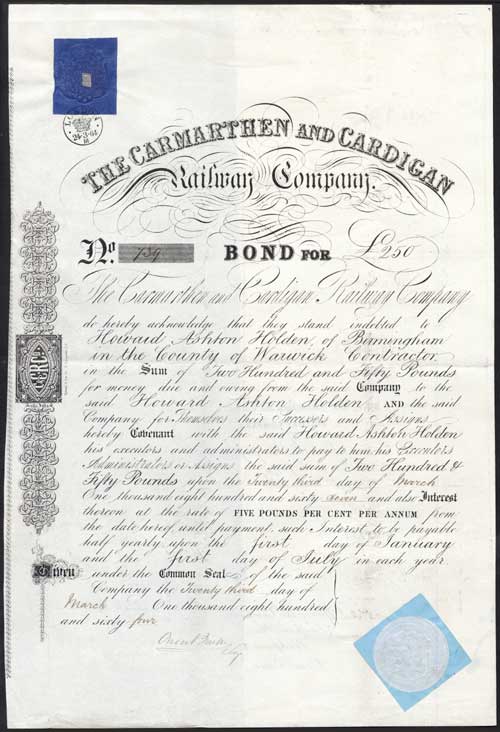 24-3-64
THE CARMARTHEN AND CARDIGAN
Railway Company.
No. 739 BOND FOR £250
The Carmarthen and Cardigan Railway Company
do hereby acknowledge that they stand indebted to
Howard Ashton Holden, of Birmingham
in the County of Warwick Contractor
in the Sum of Two Hundred and Fifty Pounds
for money due and owing from the said Company to the
said Howard Ashton Holden AND the said
Company for Themselves their Successors and Assigns
hereby Covenant with the said Howard Ashton Holden
his executors and administrators to pay to him, his Executors
Administrators or Assigns the said sum of Two Hundred &
Fifty Pounds upon the Twenty third day of March
One thousand eight hundred and sixty seven and also Interest
thereon at the rate of FIVE POUNDS PER CENT PER ANNUM from
the date hereof until payment, such Interest to be payable
half yearly upon the first day of January
and the first day of July in each year
Given under the Common Seal of the said
Company the Twenty third day of
March One thousand eight hundred
and sixty four